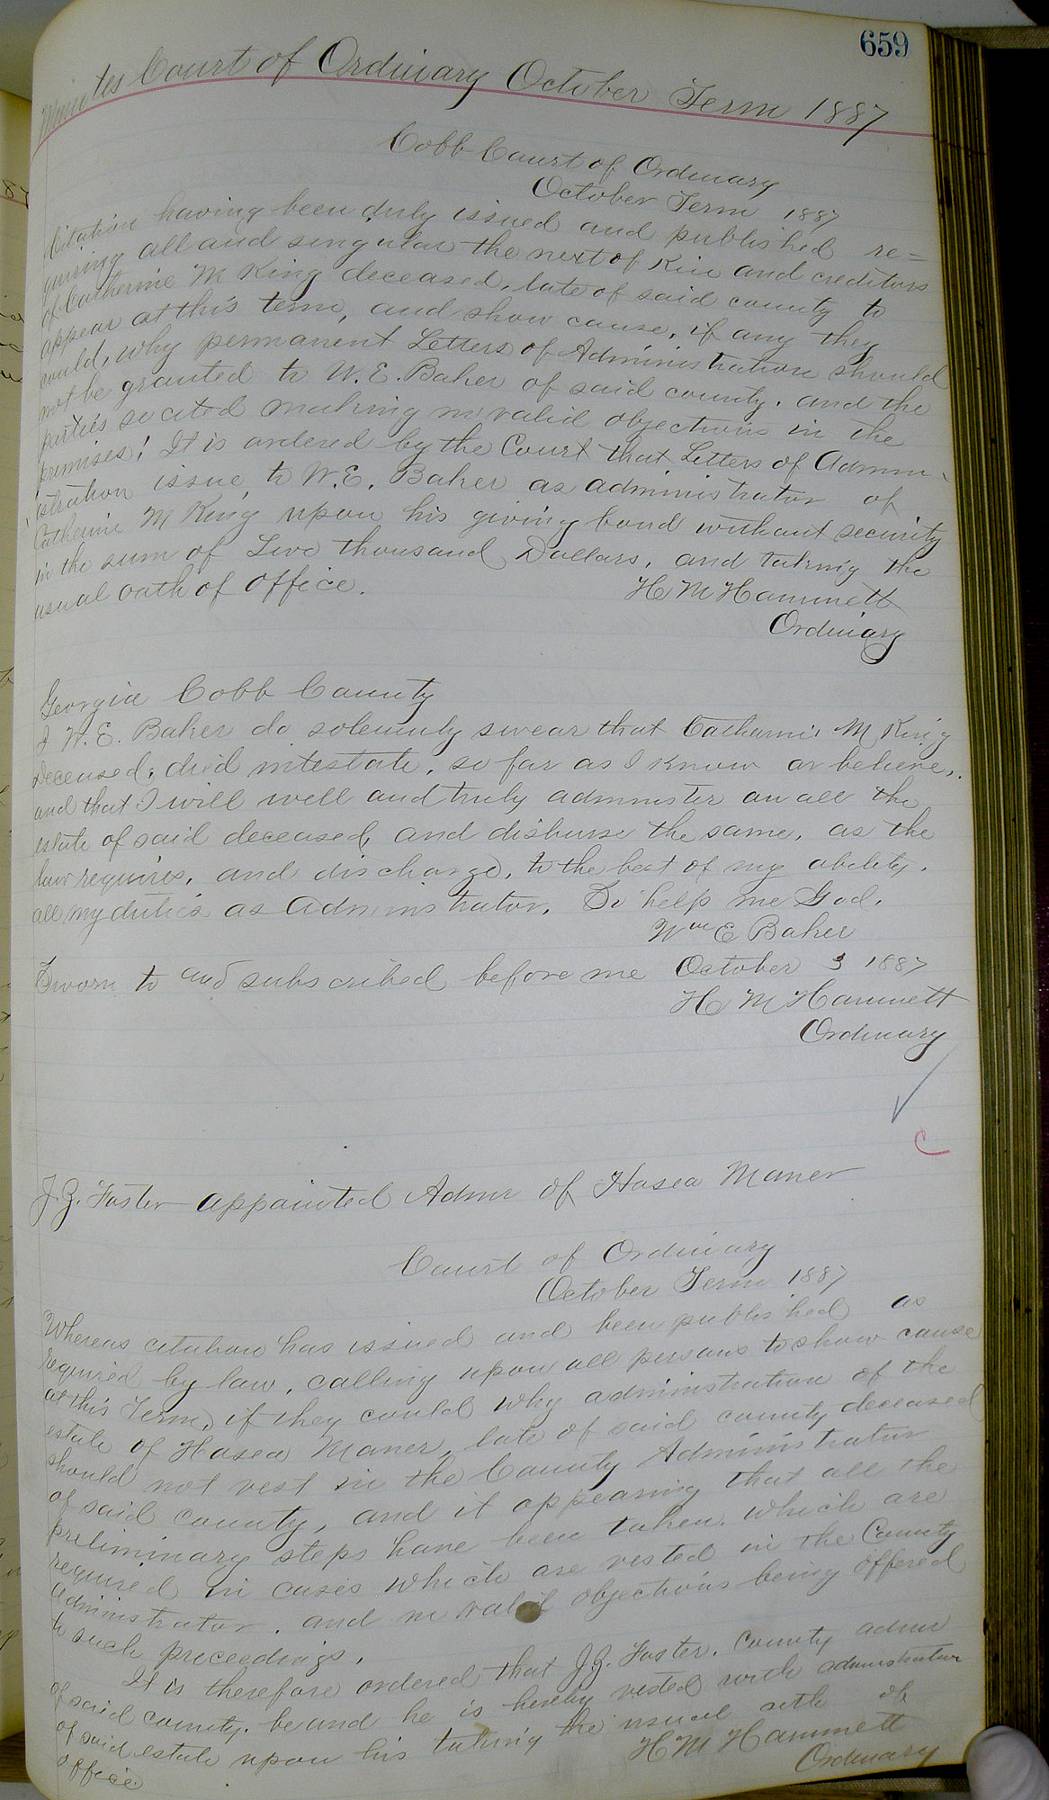 659
Minutes Court of Ordinary October Term 1887
Cobb Court of Ordinary
October Term 1887
Citation having been duly issued and published re=
quiring all and singular the next of Kin and creditors
of Catherine M King deceased, late of said county to
appear at this term, and show cause, if any they
could, why permanent Letters of Administration should
not be granted to W. E. Baker of said county. and the
parties so cited making no valid objections in the
premises! It is ordered by the Court that Letters of Admin-
istration issue to W. E. Baker as administrator of
Catherine M King upon his giving bond without security
in the sum of Two thousand Dollars, and taking the
usual oath of office.
H M Hammett
Ordinary
Georgia Cobb County
I W. E. Baker do solemnly swear that Catharine M King
deceased, died intestate, so far as I know or believe,
and that I will well and truly administer on all the
estate of said deceased, and disburse the same, as the
law requires, and discharge, to the best of my ability,
all my duties as administrator. So help me God.
Wm E Baker
Sworn to and subscribed before me October 3 1887
H M Hammett
Ordinary
C
J. Z. Foster appointed Admr of Hosea Maner
Court of Ordinary
October Term 1887
Whereas citation has issued and been published as
required by law, calling upon all persons to show cause
at this Term, if they could why administration of the
estate of Hosea Maner, late of said county deceased
should not vest in the County Administrator
of said county, and it appearing that all the
preliminary steps have been taken. which are
required in cases which are vested in the County
administrator. and no valid objections being offered
to such proceedings.
It is therefore ordered that J. Z. Foster. County admr
of said county. be and he is hereby vested with administration
of said estate upon his taking the usual oath of
office
H M Hammett
Ordinary